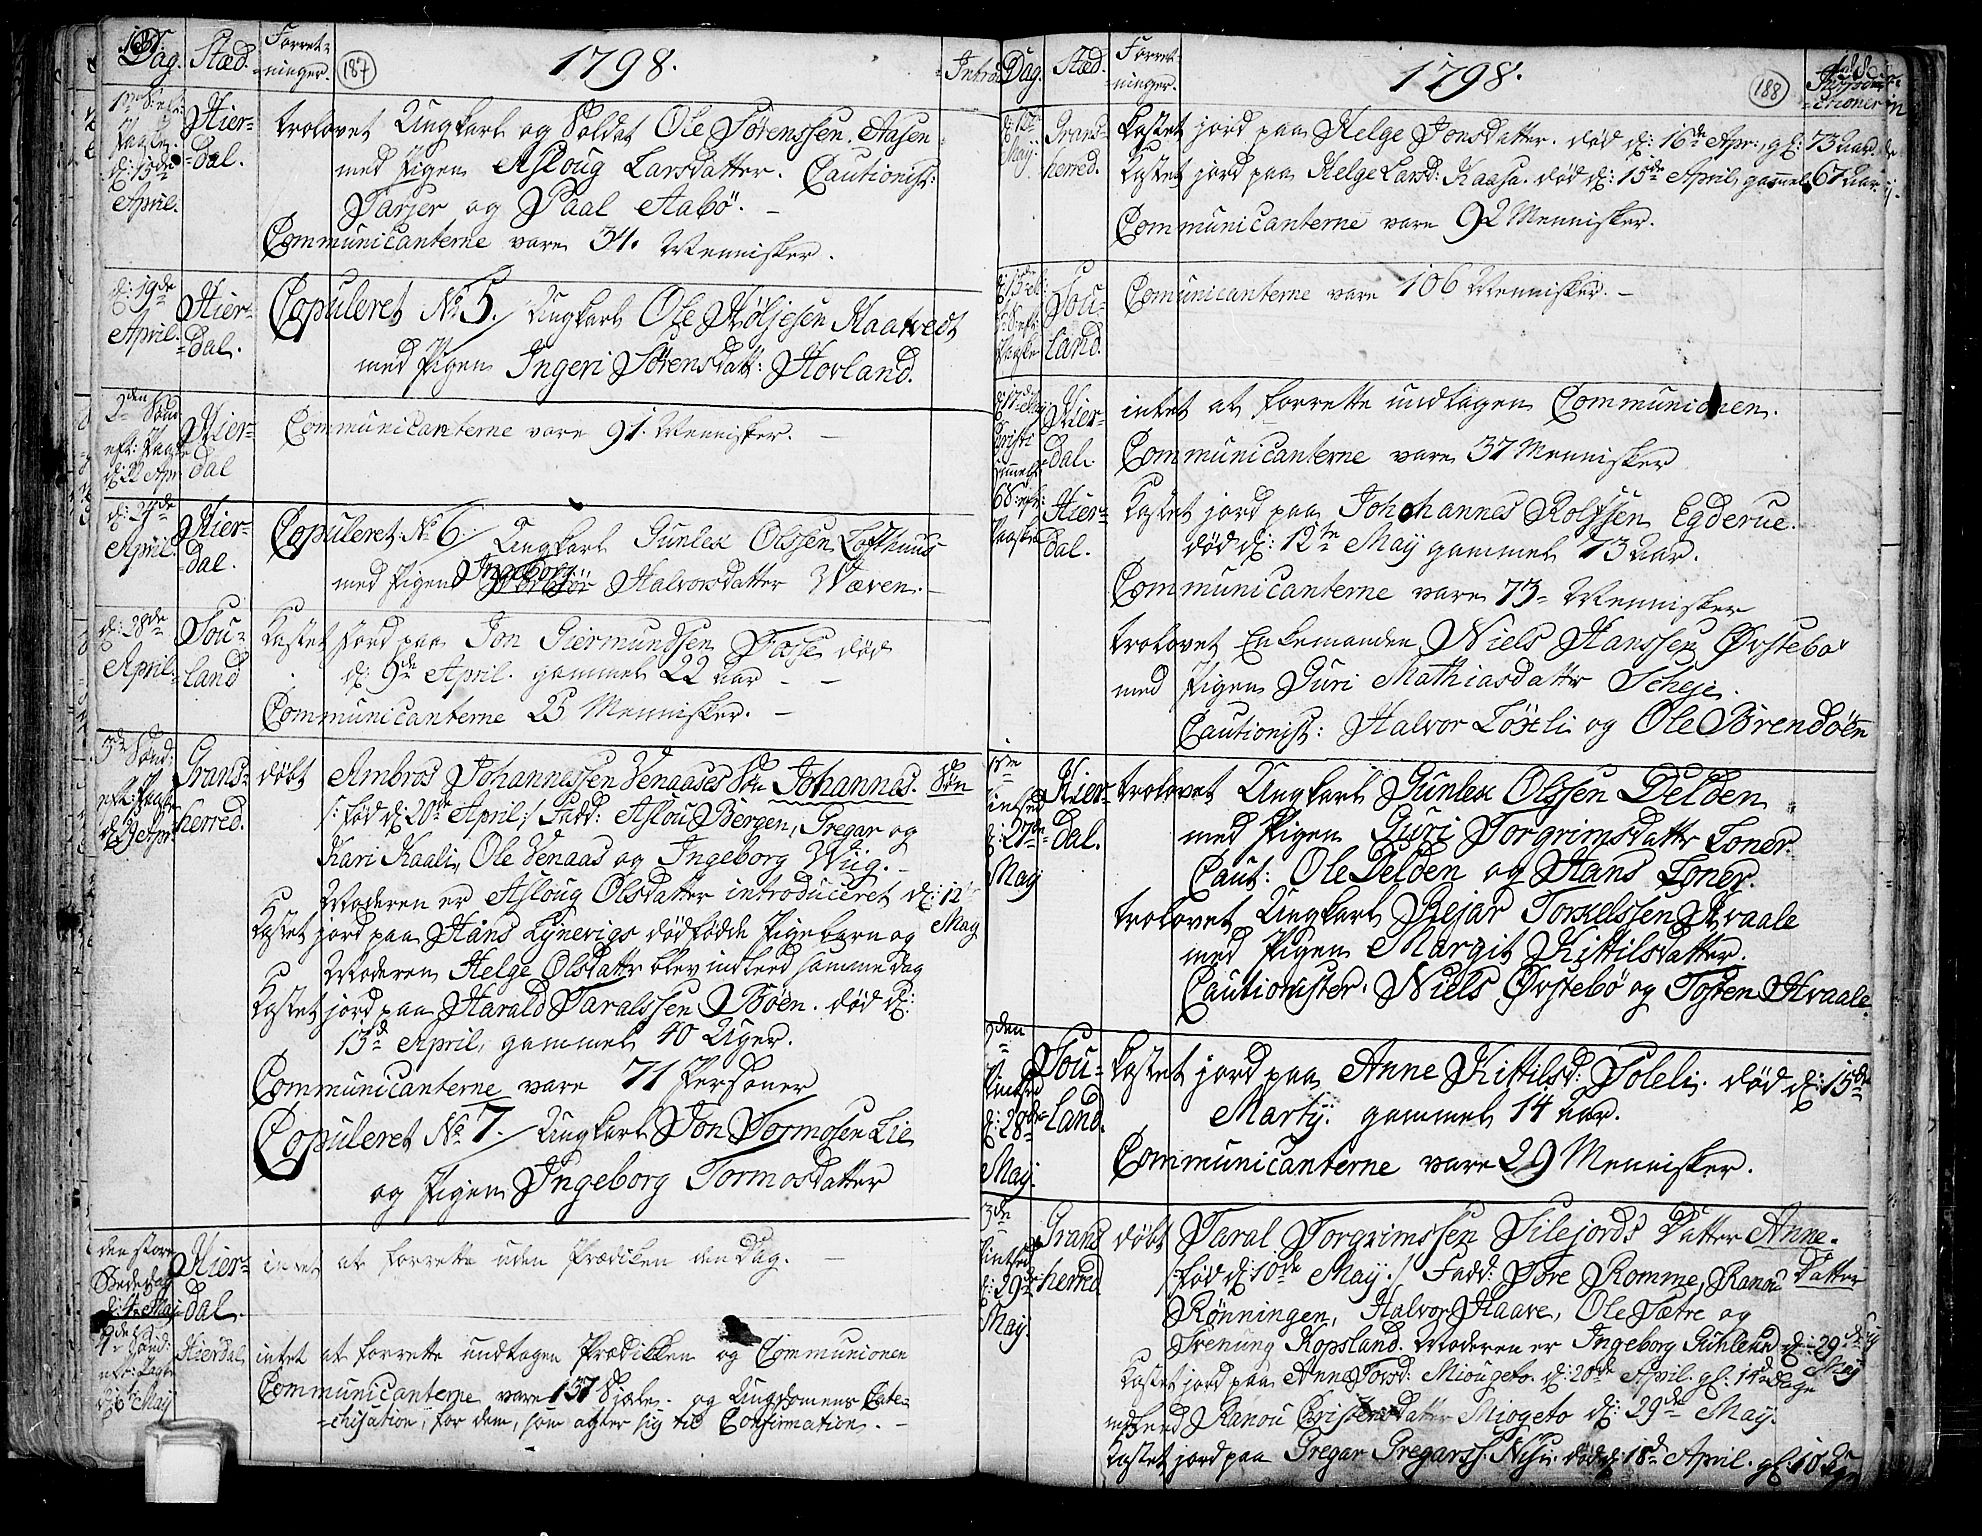 187.
Dag. Stæd. Forret-
ninger. 187 1798. Introd
1ste S: eft:
Paaske.
d: 15de
April.
Hier-
dal.
trolovet Ungkarl og Soldat Ole Sørenssen Aasen
med Pigen Asloug Larsdatter. Cautionist:
Tarjer og Paal Aabö. -
Communicanterne vare 34. Mennisker.
d: 19de
April.
Hier-
dal.
Copuleret No 5. / Ungkarl Ole Köljesen Kaatvedt
med Pigen Ingeri Sörensdatt: Hovland.
2den Sönd
eft: Paaske
d: 22 Apr
Hier-
dal
Communicanterne vare 91. Mennisker. -
d: 24de
April.
Hier-
dal.
Copuleret No 6 / Ungkarl Gunlex Olssen Lofthuus
med Pigen Ingeborg Halvorsdatter Wæven. -
d: 28de
April
Sou-
land
Kastet Jord paa Jon Giermundsen Fosse död
d: 9de April. gammel 22 aar - -
Communicanterne 25 Mennisker. -
3de Sönd:
eft: Paaske
d: 29 Apr:
Grans-
herred.
döbt Ambros Johannessen Venaases Sön Johannes. Sön
/: föd d: 20de April :/ Fadd: Aslou Bergen, Gregar og
Kari Kaali, Ole Venaas og Ingeborg Wiig. -
Moderen er Asloug Olsdatter introduceret d: 12te
May
Kastet jord paa Hans Lynevigs dödfödde Pigebarn og
Moderen Helge Olsdattr blev indleed samme dag
Kastet jord paa Harald Taralssen Böen. död d:
13de April, gammel 40 Uger.
Communicanterne vare 71 Personer
Copuleret No 7. / Ungkarl Jon Tormosen Lie
og Pigen Ingeborg Tormosdatter
den store
Bededag
d: 4 May
Hier-
dal.
intet at forrette uden Prædiken den Dag. -
4de Sönd:
eft: Paaske
d: 6te May
Hierdal
intet at forrette undtagen Prædikken og Communionen
Communicanterne vare 137 Sjæle. - og Ungdomens Cate-
chisation, for dem, som agter sig til Confirmation. -
Dag. Stæd. Forret-
ninger. 1798. 188 188
d: 12te
May.
Grans-
herred.
Kastet jord paa Helge Jonsdatter. död d: 16de Apr:, gl: 73 aar.
Kastet jord paa Helge Larsd: Kaasa. död d: 15de April, gammel 67 aar
Communicanterne vare 92 Mennisker.
d: 13de
5 S: eft:
Paaske
Sou-
land.
Comunicanterne vare 106 Mennisker. -
d: 17de May
Christi
Himmelf
Hier-
dal.
intet at forrette undtagen Communionen.
Communicanterne vare 37 Mennisker
6 S: eft:
Paaske
Hier-
dal.
Kastet jord paa Johohannes Rolfssen Egderue.
död d: 12te May gammel 73 aar.
Communicanterne vare 73 - Mennisker
trolovet Enkemanden Niels Hanssen Örstebö
med Pigen Guri Mathiasdattr Scheje.
Cautionist: Halvor Löxli og Ole Brendöen
1ste
Pintsed
d: 27de
May
Hier-
dal.
trolovet Ungkarl Gunlex Olssen Delden
med Pigen Guri Torgrimsdattr Loner.
Caut: Ole Delden og Hans Loner.
trolovet Ungkarl Rejar Torkelssen Hvaale
med Pigen Margit Kittilsdatter.
Cautionister. Niels Örstebö og Tosten Hvaale.
2den
Pintsed
d: 28de
May.
Sou-
land.
Kastet jord paa Anne Kittilsd: Soleli. död d: 15de
Martij. gammel 14 aar.
Communicanterne vare 29 Mennisker.
3de
Pintsed
d: 29de
May.
Grans
herred
döbt Taral Torgrimssen Silejords Datter Anne.
/: föd d: 10de May. :/ Fadd: Tore Romme, Ranou Datter
Rönningen, Halvor Haave, Ole Sætre og
Trenung Kopsland. Moderen er Ingeborg d: 29de
May
Kastet jord paa Anne Torsd: Miougeto. d: 20de April. gl: 14 dage
indleed Ranou Cristensdatter Miogeto d: 29de May.
Kastet jord paa Gregar Gregarss: Nisi. död d: 18de April. gl: 10